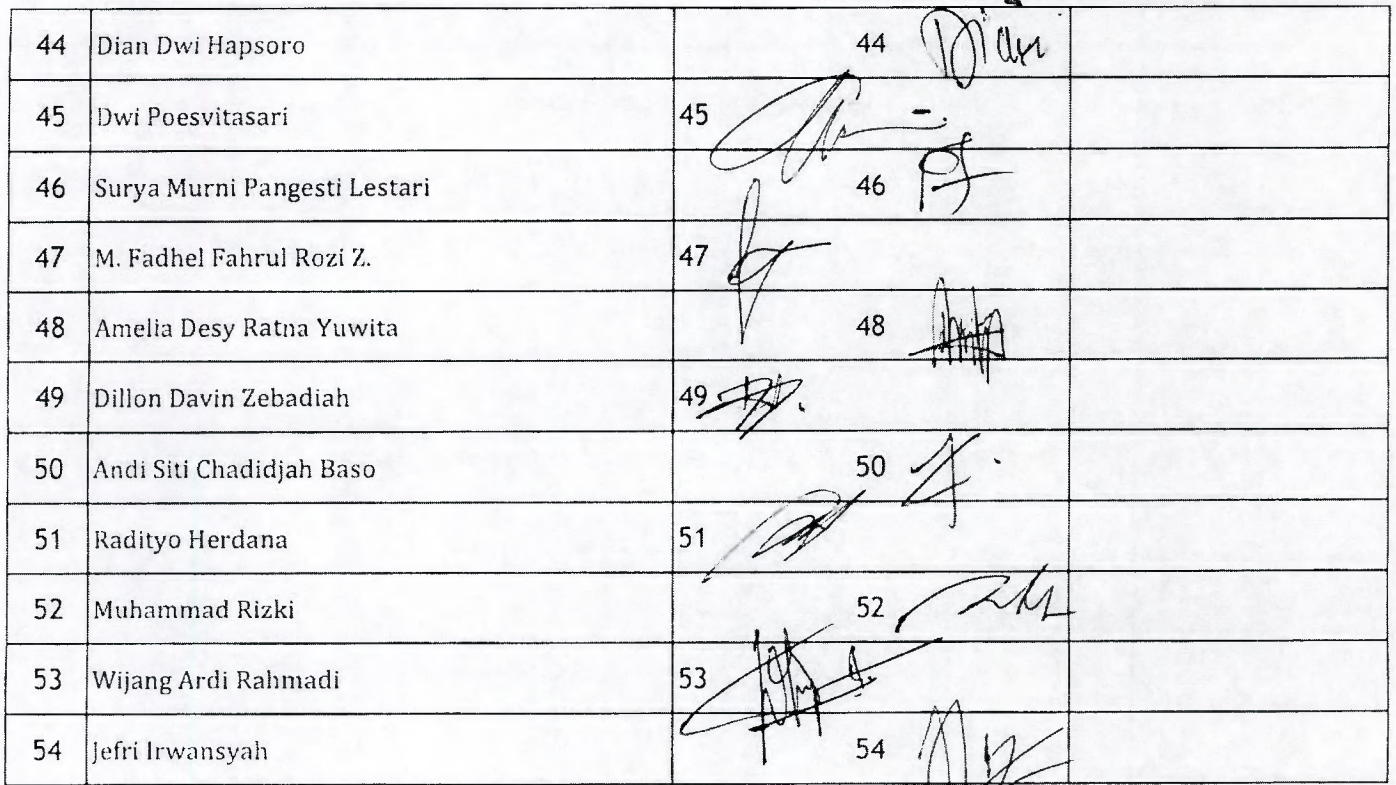 44 Dian Dwi Hapsoro 44 Dian
45 Dwi Poesvitasari 45
46 Surya Murni Pangesti Lestari 46
47 M. Fadhel Fahrul Rozi Z. 47
48 Amelia Desy Ratna Yuwita 48
49 Dillon Davin Zebadiah 49
50 Andi Siti Chadidjah Baso 50
51 Radityo Herdana 51
52 Muhammad Rizki 52
53 Wijang Ardi Rahmadi 53
54 Jefri Irwansyah 54